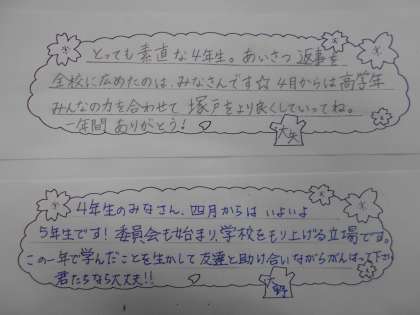 とっても素直な4年生。あいさつ 返事を
全校に広めたのは、みなさんです☆ 4月からは高学年
みんなの力を合わせて 塚戸をより良くしていってね。
一年間 ありがとう!
大矢
4年生のみなさん、四月からは いよいよ
5年生です!委員会も始まり、学校をもり上げる立場です。
この一年で学んだことを生かして 友達と助け合いながらがんばって下さい
君たちなら大丈夫!!
野